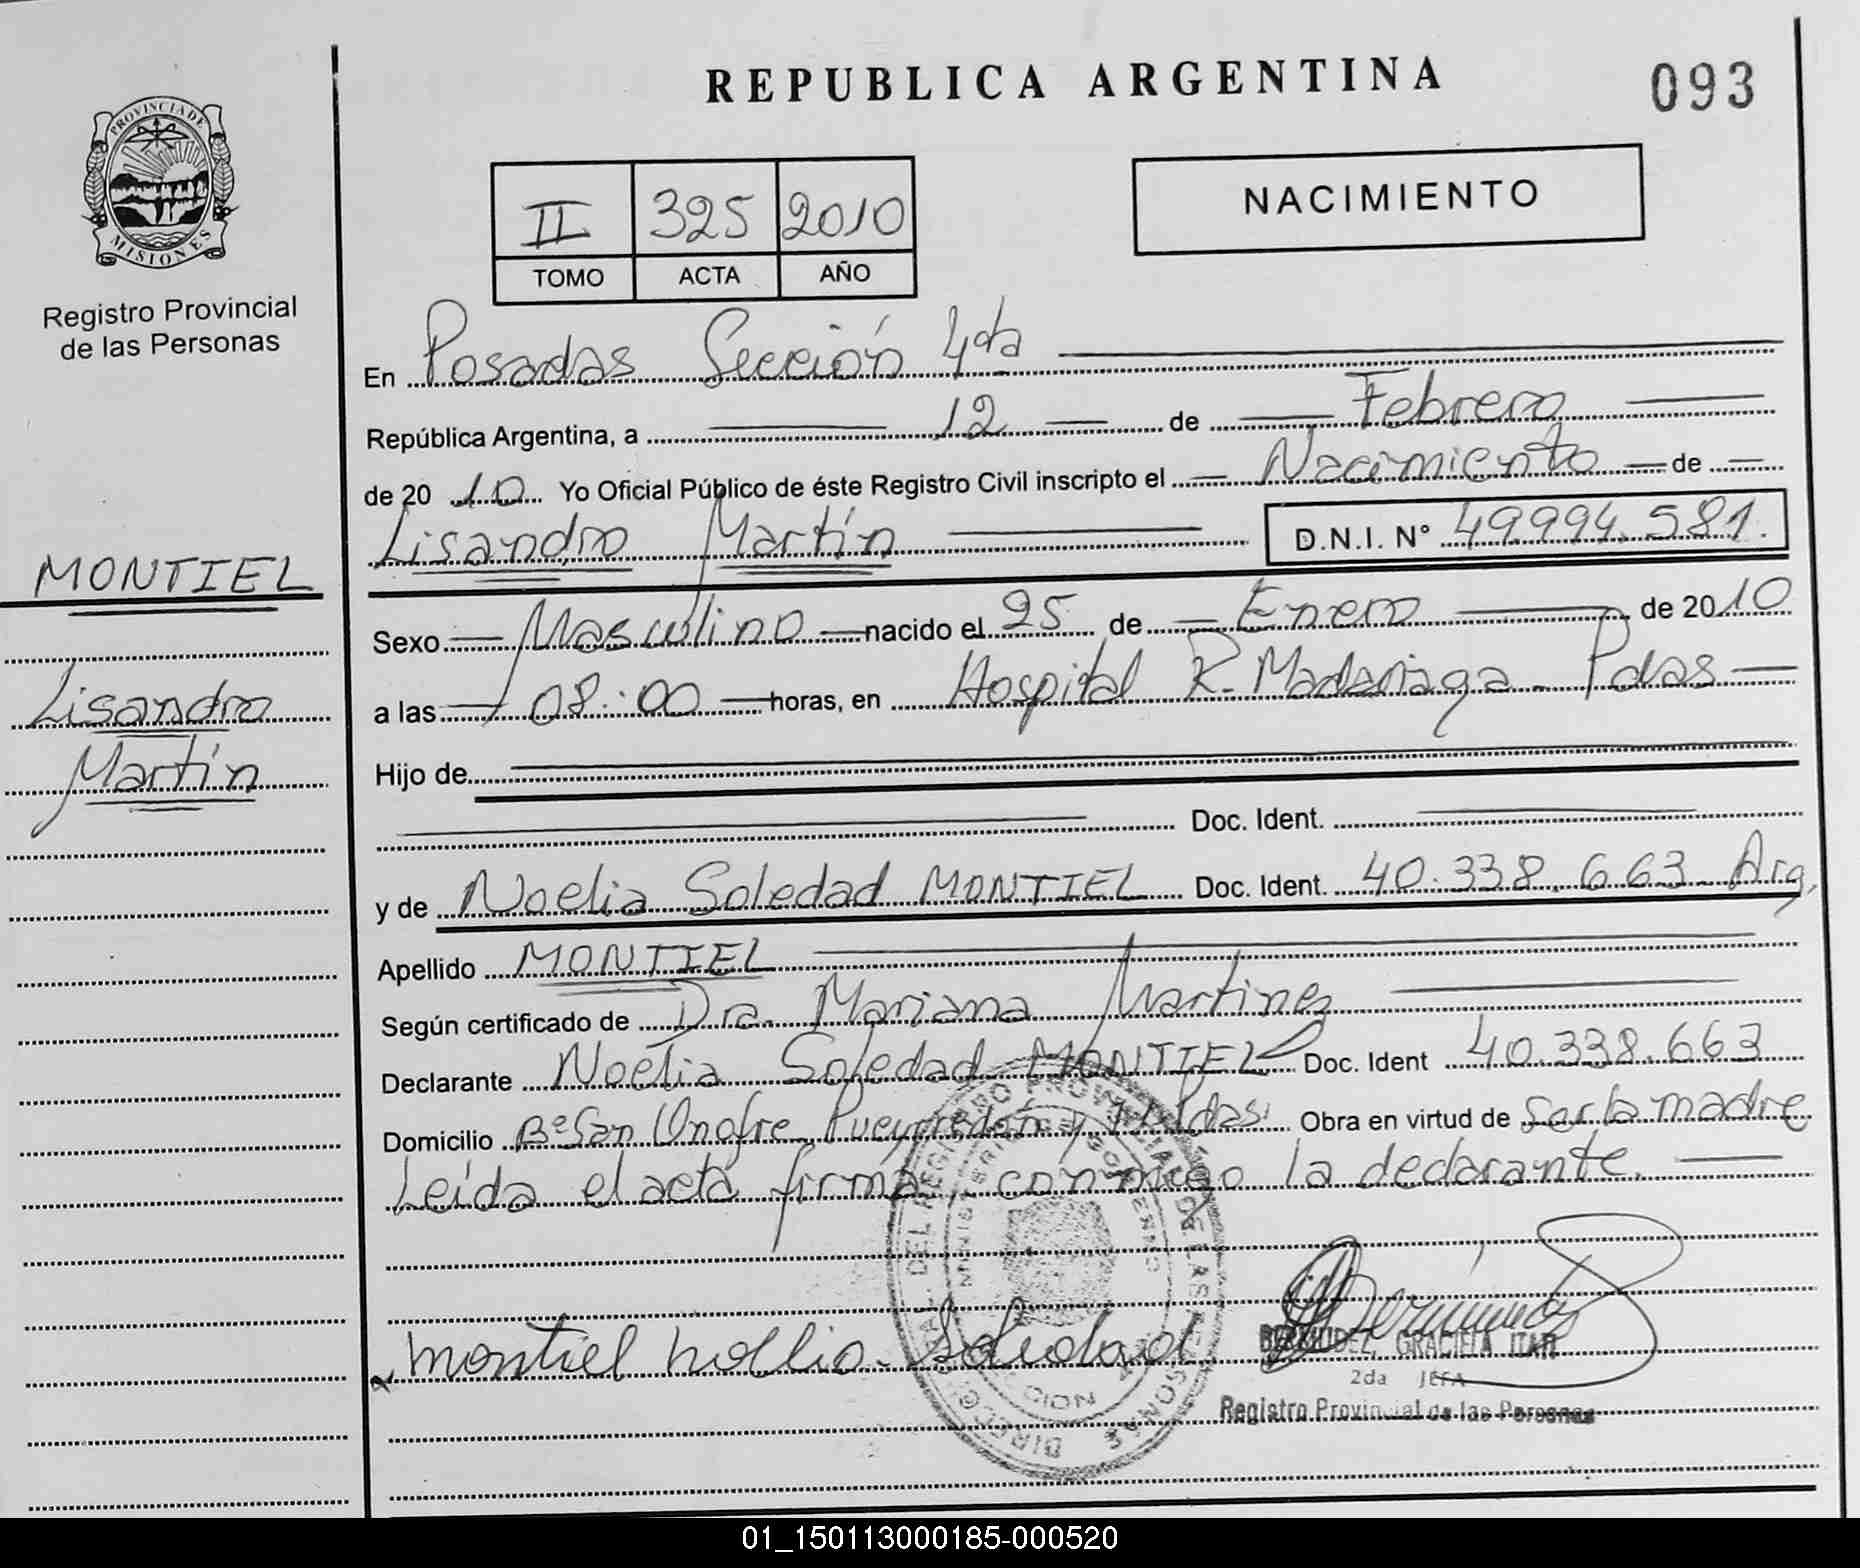 REPUBLICA ARGENTINA
093
PROVINCIA DE
MISIONES
Registro Provincial
de las Personas
II 325 2010
TOMO ACTA AÑO
NACIMIENTO
En Posadas Sección 4da
República Argentina, a 12 de Febrero
de 2010 Yo Oficial Público de éste Registro Civil inscripto el Nacimiento de
Lisandro Martín D.N.I. N° 49994.581.
MONTIEL
Lisandro
Martín
Sexo Masculino nacido el 25 de Enero de 2010
a las 08:00 horas, en Hospital R. Madariaga - Pdas
Hijo de
Doc. Ident.
y de Noelia Soledad MONTIEL Doc. Ident. 40.338.663 Arg.
Apellido MONTIEL
Según certificado de Dra. Mariana Martinez
Declarante Noelia Soledad MONTIEL Doc. Ident 40.338.663
Domicilio B° San Onofre Pueyrredón y Pdas. Obra en virtud de ser la madre
Leída el acta firma, conmigo la declarante.
montiel Soledad
BERMUDEZ, GRACIELA ITATI
2da JEFA
Registro Provincial de las Personas
DEL REGISTRO PROVINCIAL DE LAS PERSONAS
MINISTERIO DE GOBIERNO
01_150113000185-000520